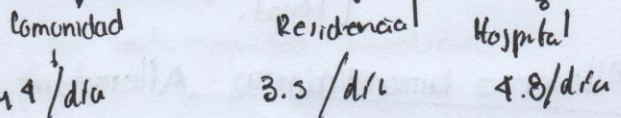 Comunidad Residencial Hospital
4/día 3.5/día 4.8/día